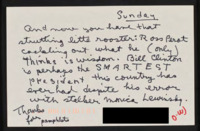 Sunday.
And now you have that
strutting little rooster: Ross Perot
out what he (only)
thinks is wisdom. Bill Clinton
is perhaps the SMARTEST
president this country has
ever had despite his error
with stalker Monica Lewinsky.
Thanks
for pamphlets